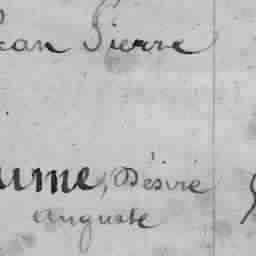 Jean Pierre
ume, Désiré
Auguste